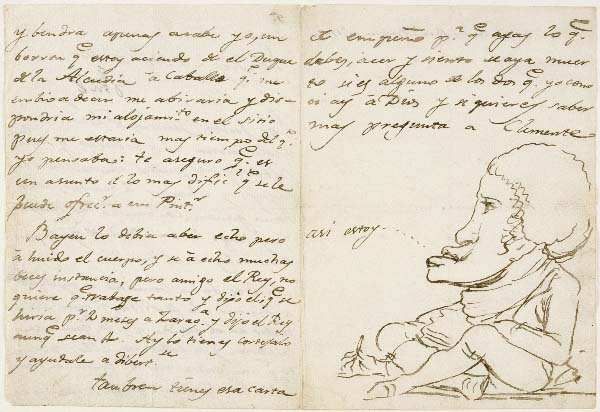 y bendra apenas acabe yo, un
borron qe estoy aciendo de el Duque
de la Alcudia a Caballo qe me
embio a decir me abisaria y dis-
pondria mi alojamto en el sitio
pues me estaria mas tiempo del qe
yo pensaba: te aseguro qe es
un asunto de lo mas dificl qe se le
puede ofrecr a un Pintr
Bayeu lo debia aber echo pero
a huido el cuerpo, y se a echo muchas
beces instancia, pero amigo el Rey, no
quiere qe trabage tanto y dijo el qe se
hiria pr 2 meses a Zarага y dijo el Rey
aunqe sean 4. Ay lo tienes consejalo
y ayudale a dibertse
tambien tienes esa carta
de empeño pa qe agas lo qe
debes, acer y siento se aya muer
to si es alguno de los dos qe yo cono
ci ay à Dios y si quieres saber
mas pregunta a Clemente
asi estoy